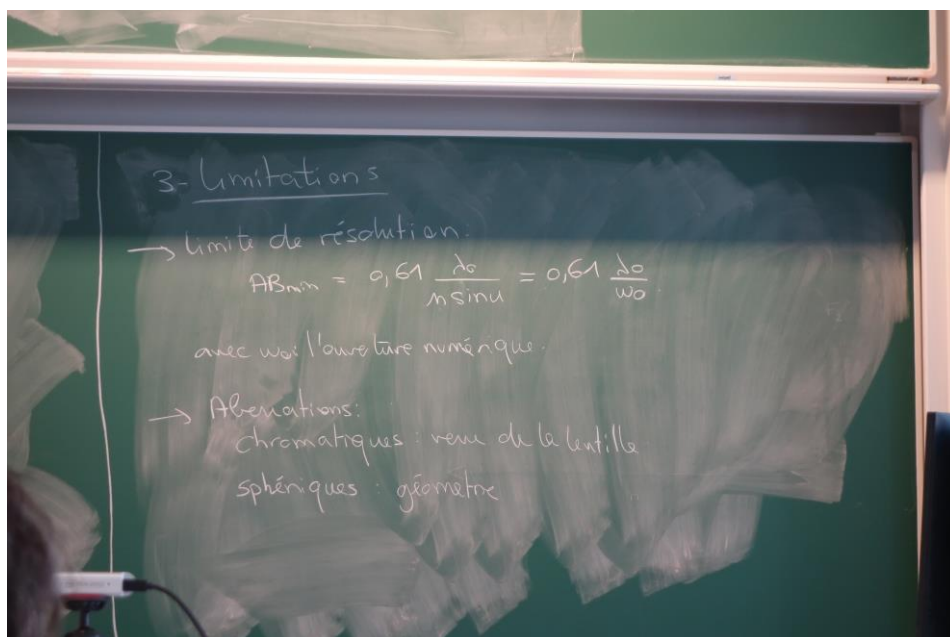 3- Limitations
→ limite de résolution:
AB_min = 0,61 λ₀ / (n sin u) = 0,61 λ₀ / ω₀
avec ω₀: l'ouverture numérique.
→ Aberrations:
chromatiques : verre de la lentille
sphériques : géométrie